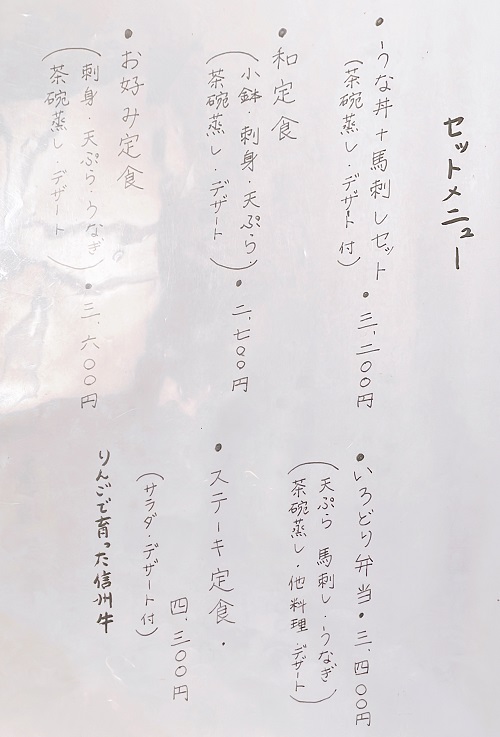 セットメニュー
・うな丼+馬刺しセット・三、二〇〇円
(茶碗蒸し・デザート付)
・和定食
(小鉢・刺身・天ぷら・
茶碗蒸し・デザート)・二、七〇〇円
・お好み定食
(刺身・天ぷら・うなぎ
茶碗蒸し・デザート)・三、六〇〇円
・いろどり弁当・三、四〇〇円
(天ぷら 馬刺し・うなぎ
茶碗蒸し・他料理・デザート)
・ステーキ定食・
四、三〇〇円
(サラダ・デザート付)
りんごで育った信州牛